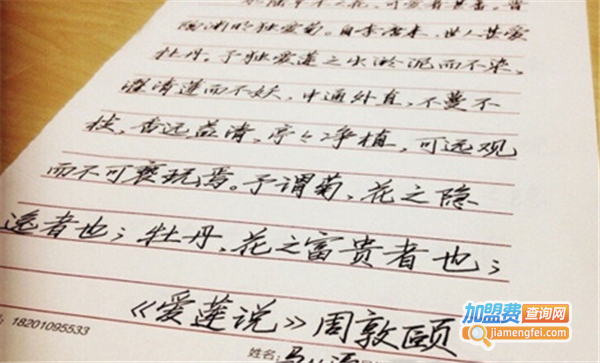 可爱者甚蕃。晋
陶渊明独爱菊。自李唐来，世人甚爱
牡丹。予独爱莲之出淤泥而不染，
濯清莲而不妖，中通外直，不蔓不
枝，香远益清，亭亭净植，可远观
而不可亵玩焉。予谓菊，花之隐
逸者也；牡丹，花之富贵者也；
《爱莲说》周敦颐
18201095533
姓名：
加盟费查询网
jiamengfei.com